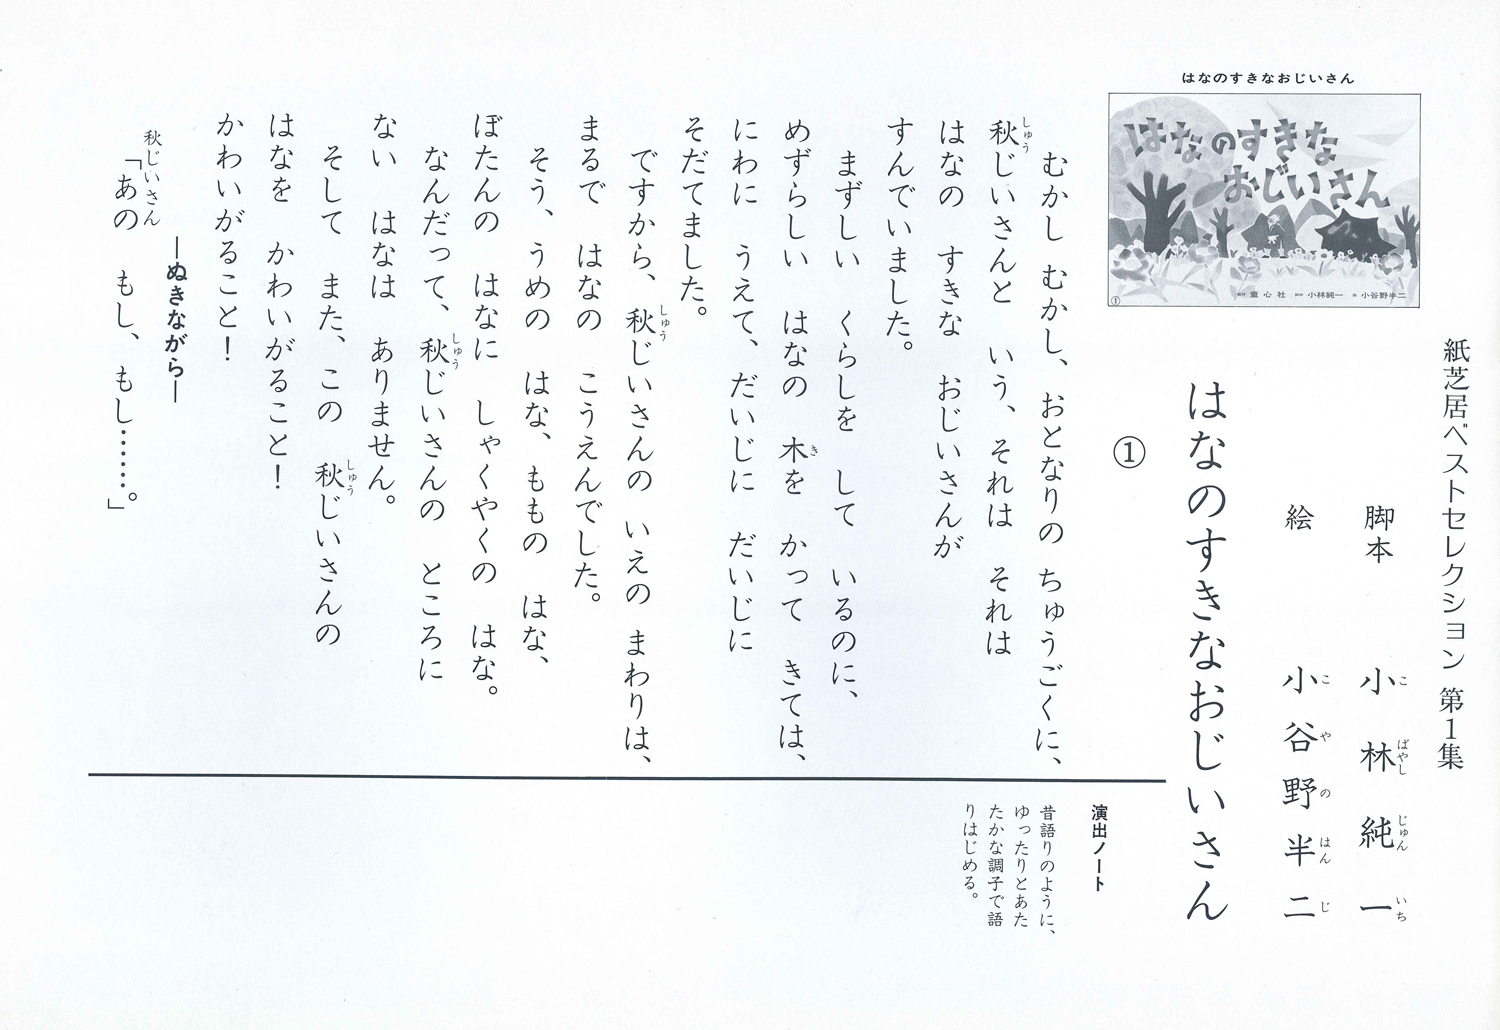 紙芝居ベストセレクション 第1集
脚本 小林純一
こ ばやし じゅん いち
絵 小谷野半二
こ や の はん じ
はなのすきなおじいさん
はなのすきなおじいさん
はなのすきな
おじいさん
製作 童心社 脚本 小林純一 画 小谷野半二
①
①
むかし むかし、おとなりの ちゅうごくに、
秋じいさんと いう、それは それは
しゅう
はなの すきな おじいさんが
すんでいました。
まずしい くらしを して いるのに、
めずらしい はなの 木を かって きては、
き
にわに うえて、だいじに だいじに
そだてました。
ですから、秋じいさんの いえの まわりは、
しゅう
まるで はなの こうえんでした。
そう、うめの はな、ももの はな、
ぼたんの はなに しゃくやくの はな。
なんだって、秋じいさんの ところに
しゅう
ない はなは ありません。
そして また、この 秋じいさんの
しゅう
はなを かわいがること!
かわいがること!
―ぬきながら―
秋じいさん
「あの もし、もし……。」
演出ノート
昔語りのように、
ゆったりとあた
たかな調子で語
りはじめる。